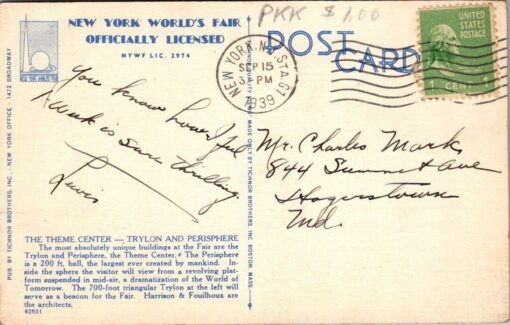 PKK $1.00
NEW YORK WORLD'S FAIR
OFFICIALLY LICENSED
NYWF LIC. 2974
NEW YORK WORLD'S FAIR
POST CARD
NEW YORK, N.Y. STA. 61
SEP 15
3 PM
1939
UNITED
STATES
POSTAGE
1 CENT
You know how I feel
Week is sure thrilling.
Lewis
Mr. Charles Marks
844 Summit Ave
Hagerstown
Md.
THE THEME CENTER — TRYLON AND PERISPHERE
The most absolutely unique buildings at the Fair are the
Trylon and Perisphere, the Theme Center. The Perisphere
is a 200 ft. ball, the largest ever created by mankind. In-
side the sphere the visitor will view from a revolving plat-
form suspended in mid-air, a dramatization of the World of
Tomorrow. The 700-foot triangular Trylon at the left will
serve as a beacon for the Fair. Harrison & Fouilhoux are
the architects.
62531
PUB. BY TICHNOR BROTHERS, INC. - NEW YORK OFFICE - 1472 BROADWAY
QUALITY VIEWS MADE ONLY BY TICHNOR BROTHERS, INC. BOSTON, MASS.